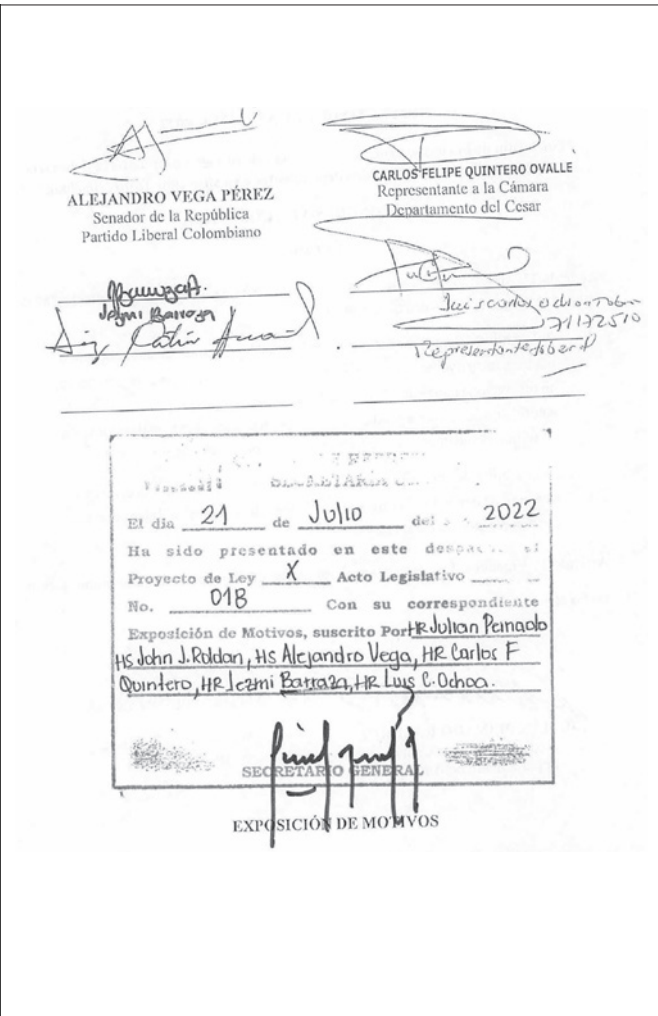 ALEJANDRO VEGA PÉREZ
Senador de la República
Partido Liberal Colombiano
CARLOS FELIPE QUINTERO OVALLE
Representante a la Cámara
Departamento del Cesar
Jezmi Barraza
Luis Carlos Ochoa Tobón
71172510
Representante liberal
SECRETARÍA
El día 21 de Julio del 2022
Ha sido presentado en este despacho el
Proyecto de Ley X Acto Legislativo
No. 018 Con su correspondiente
Exposición de Motivos, suscrito Por HR Julian Peinado
HS John J. Roldan, HS Alejandro Vega, HR Carlos F
Quintero, HR Jezmi Barraza, HR Luis C. Ochoa.
SECRETARIO GENERAL
EXPOSICIÓN DE MOTIVOS